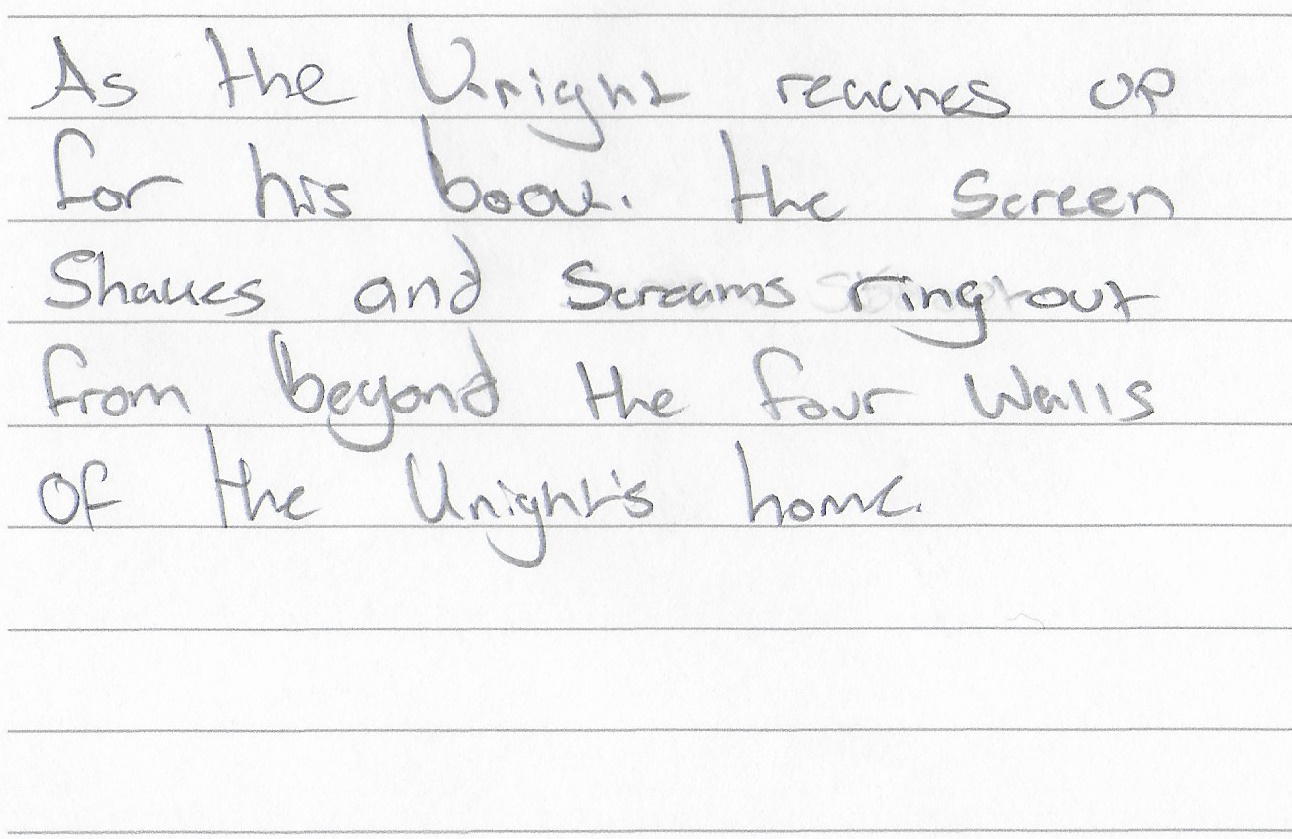 As the Knight reaches up
for his book. the screen
Shakes and Screams ring out
from beyond the four walls
of the Knight's home.